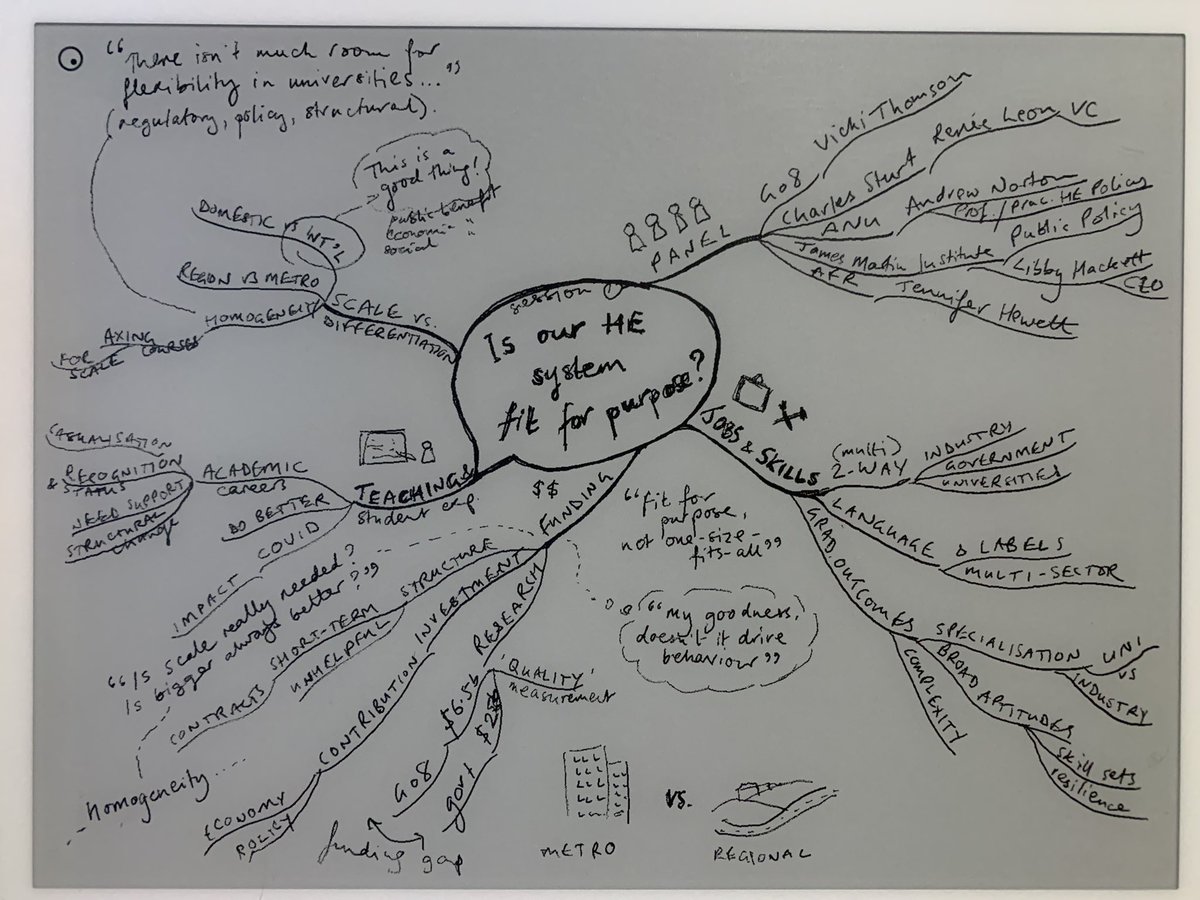 "There isn't much room for
flexibility in universities..."
(regulatory, policy, structural).
This is a
good thing!
public benefit
economic "
social "
DOMESTIC vs INT'L
REGION VS METRO
HOMOGENEITY
AXING COURSES
FOR SCALE
SCALE vs.
DIFFERENTIATION
PANEL
GO8
Vicki Thomson
Charles Sturt
Renée Leon VC
ANU
Andrew Norton
Prof/prac. HE Policy
James Martin Institute
Public Policy
Libby Hackett
CEO
AFR
Jennifer Hewett
session 1
Is our HE
system
fit for purpose?
TEACHING &
student exp.
ACADEMIC
careers
CASUALISATION
& RECOGNITION
STATUS
NEED SUPPORT
STRUCTURAL
change
DO BETTER
COVID
IMPACT
JOBS & SKILLS
(multi)
2-WAY
INDUSTRY
GOVERNMENT
UNIVERSITIES
LANGUAGE
& LABELS
MULTI-SECTOR
GRAD. OUTCOMES
SPECIALISATION
UNI
vs
INDUSTRY
BROAD APTITUDES
skill sets
resilience
COMPLEXITY
$$
FUNDING
STRUCTURE
SHORT-TERM
UNHELPFUL
CONTRACTS
INVESTMENT
CONTRIBUTION
ECONOMY
POLICY
RESEARCH
'QUALITY'
measurement
$6.5b
GO8
govt
funding gap
"fit for
purpose,
not one-size-
fits-all"
"my goodness,
doesn't it drive
behaviour"
"Is scale really needed?
Is bigger always better?"
homogeneity....
METRO
vs.
REGIONAL